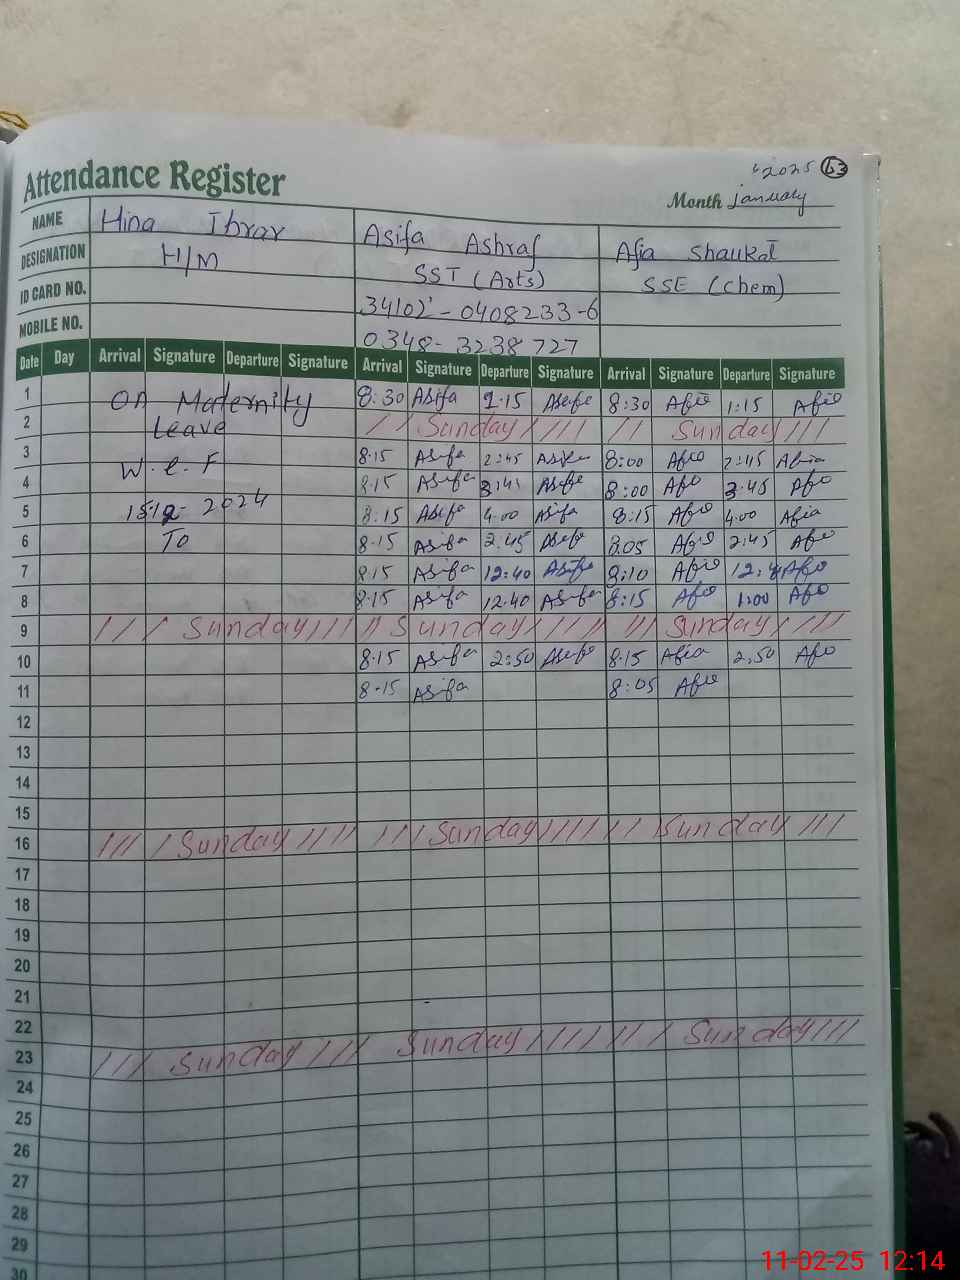 2025 63
Attendance Register
Month january
NAME Hina Ibrar Asifa Ashraf Afia Shaukat
DESIGNATION H/M SST (Arts) SSE (Chem)
ID CARD NO. 34102-0408233-6
MOBILE NO. 0348-3238727
Date Day Arrival Signature Departure Signature Arrival Signature Departure Signature Arrival Signature Departure Signature
1 On Maternity 8:30 Asifa 1.15 Asifa 8:30 Afia 1:15 Afia
2 Leave / / Sunday / / / / / / Sunday / / /
3 W.e.F 8.15 Asifa 2:45 Asifa 8:00 Afia 2:45 Afia
4 8.15 Asifa 3:45 Asifa 8:00 Afia 3.45 Afia
5 15.12.2024 8.15 Asifa 4.00 Asifa 8:15 Afia 4.00 Afia
6 To 8.15 Asifa 2:45 Asifa 8.05 Afia 2:45 Afia
7 8.15 Asifa 12:40 Asifa 8:10 Afia Afia
8 8.15 Asifa 12.40 Asifa 8:15 Afia 1:00 Afia
9 / / / / Sunday / / / / / Sunday / / / / / / / / Sunday / / / /
10 8.15 Asifa 2:50 Asifa 8.15 Afia 2.50 Afia
11 8.15 Asifa 8:05 Afia
12
13
14
15
16 / / / / Sunday / / / / / / / Sunday / / / / / / / Sunday / / /
17
18
19
20
21
22
23 / / / Sunday / / / Sunday / / / / / / / Sunday / / /
24
25
26
27
28
29
30
11-02-25 12:14